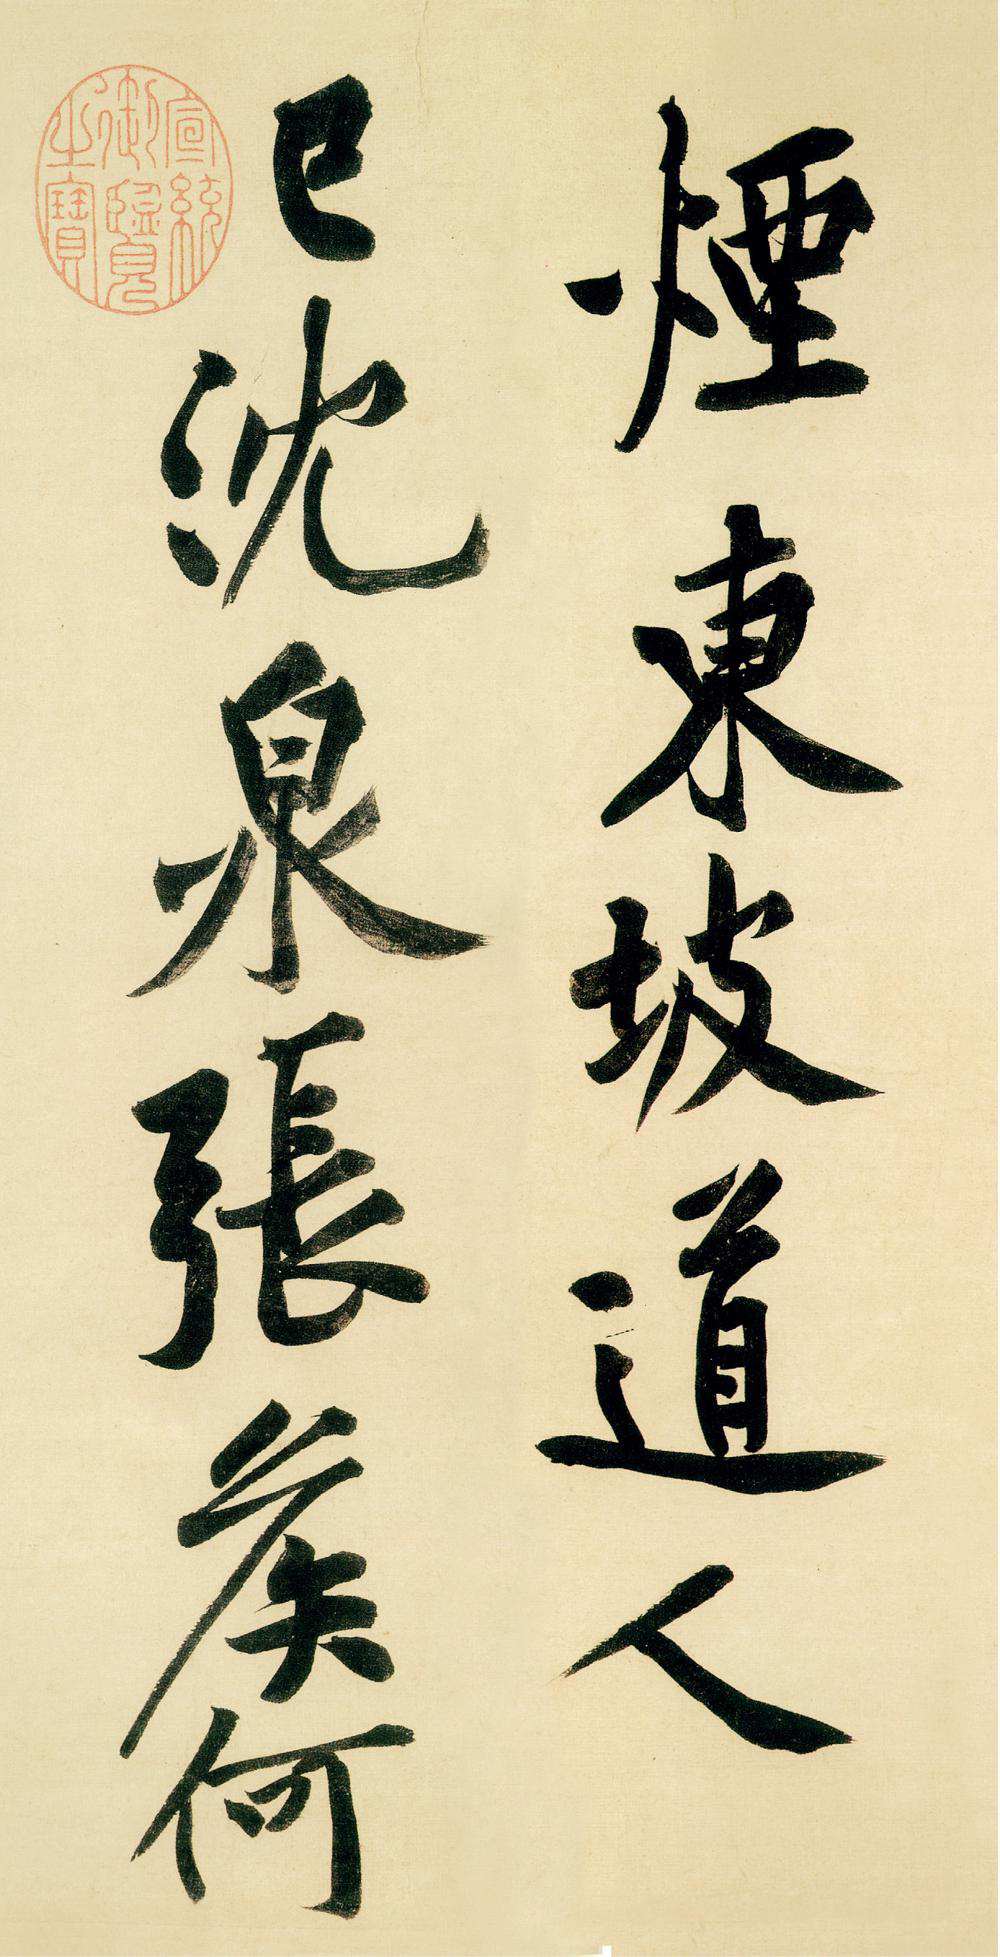 煙東坡道人
已沈泉張侯何
宣統御覽之寶